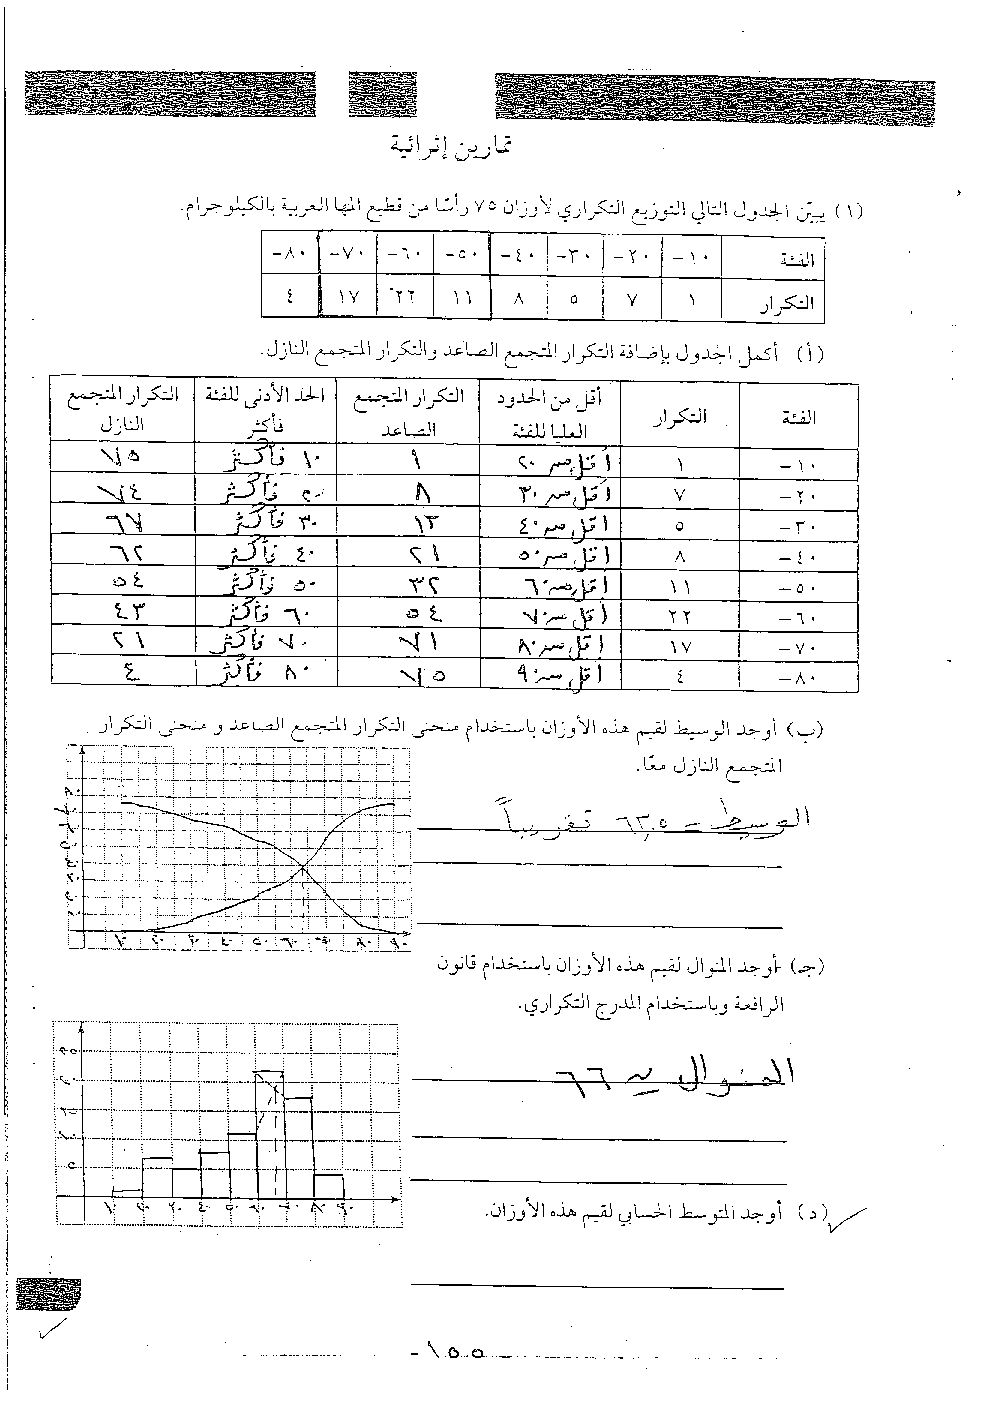 تمارين إثرائية
(١) يبيّن الجدول التالي التوزيع التكراري لأوزان ٧٥ رأسًا من قطيع المها العربية بالكيلوجرام.
الفئة ١٠− ٢٠− ٣٠− ٤٠− ٥٠− ٦٠− ٧٠− ٨٠−
التكرار ١ ٧ ٥ ٨ ١١ ٢٢ ١٧ ٤
(أ) أكمل الجدول بإضافة التكرار المتجمع الصاعد والتكرار المتجمع النازل.
الفئة التكرار أقل من الحدود العليا للفئة التكرار المتجمع الصاعد الحد الأدنى للفئة فأكثر التكرار المتجمع النازل
١٠− ١ أقل من ٢٠ ١ ١٠ فأكثر ٧٥
٢٠− ٧ أقل من ٣٠ ٨ ٢٠ فأكثر ٧٤
٣٠− ٥ أقل من ٤٠ ١٣ ٣٠ فأكثر ٦٧
٤٠− ٨ أقل من ٥٠ ٢١ ٤٠ فأكثر ٦٢
٥٠− ١١ أقل من ٦٠ ٣٢ ٥٠ فأكثر ٥٤
٦٠− ٢٢ أقل من ٧٠ ٥٤ ٦٠ فأكثر ٤٣
٧٠− ١٧ أقل من ٨٠ ٧١ ٧٠ فأكثر ٢١
٨٠− ٤ أقل من ٩٠ ٧٥ ٨٠ فأكثر ٤
(ب) أوجد الوسيط لقيم هذه الأوزان باستخدام منحنى التكرار المتجمع الصاعد و منحنى التكرار
المتجمع النازل معًا.
الوسيط = ٦٣,٥ تقريباً
١٠ ٢٠ ٣٠ ٤٠ ٥٠ ٦٠ ٧٠ ٨٠ ٩٠
(جـ) أوجد المنوال لقيم هذه الأوزان باستخدام قانون
الرافعة وباستخدام المدرج التكراري.
المنوال ≃ ٦٦
١٠ ٢٠ ٣٠ ٤٠ ٥٠ ٦٠ ٧٠ ٨٠ ٩٠
(د) أوجد المتوسط الحسابي لقيم هذه الأوزان.
-١٥٥-